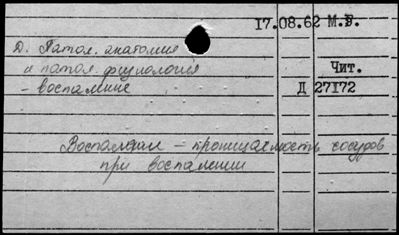 17.08.62 М.Г.
Д. Патол. анатомия
и патол. физиология
Чит.
- воспаление
Д 27172
Воспаление – проницаемость сосудов
при воспалении